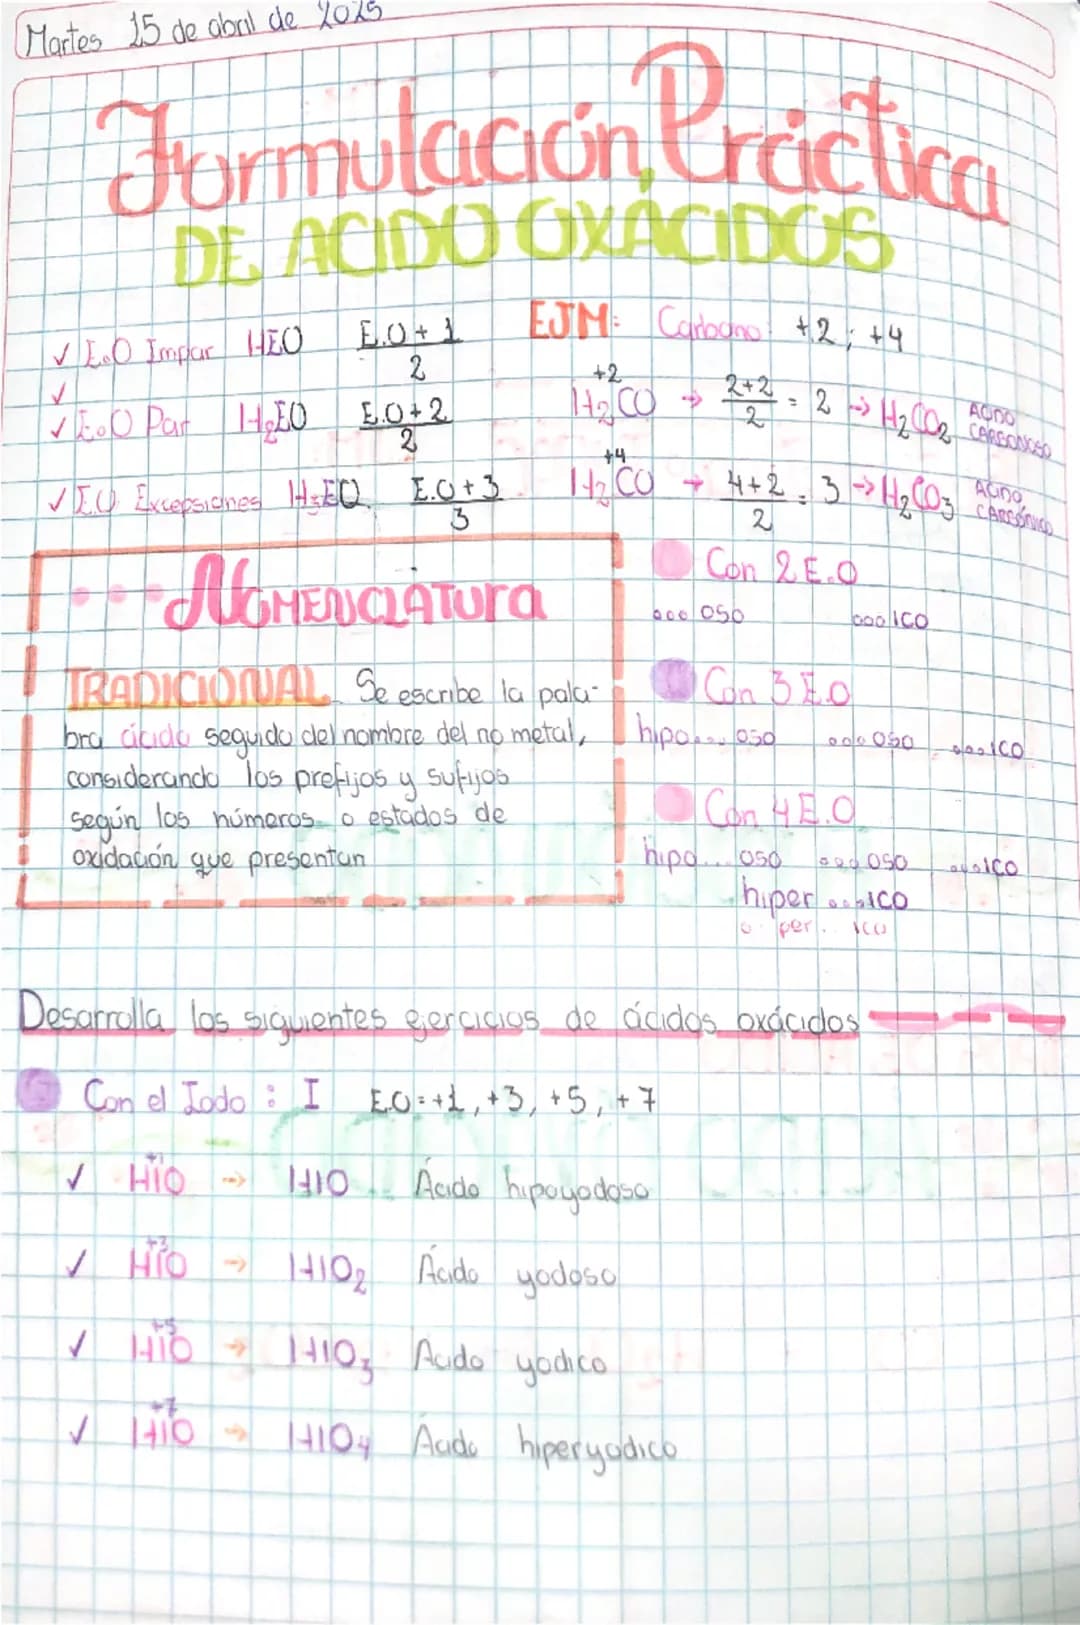 Martes 15 de abril de 2025
Formulación Práctica
DE ACIDO OXÁCIDOS
✓ E.O Impar HEO E.O + 1 / 2
✓
✓ E.O Par H₂EO E.O + 2 / 2
✓ E.O Excepsiones H₃EO E.O + 3 / 3
EJM: Carbono +2; +4
+2
H₂CO → 2+2 / 2 = 2 → H₂CO₂ ACIDO CARBONOSO
+4
H₂CO → 4+2 / 2 = 3 → H₂CO₃ ACIDO CARBÓNICO
NOMENCLATURA
TRADICIONAL Se escribe la pala-
bra ácido seguido del nombre del no metal,
considerando los prefijos y sufijos
según los números o estados de
oxidación que presentan
Con 2 E.O
... oso ... ICO
Con 3 E.O
hipo... oso ... oso ... ICO
Con 4 E.O
hipo... oso ... oso ... ICO
hiper ... ICO
o per... ICO
Desarrolla los siguientes ejercicios de ácidos oxácidos
Con el Iodo : I E.O = +1, +3, +5, +7
+1
✓ HIO → HIO Ácido hipoyodoso
+3
✓ HIO → HIO₂ Ácido yodoso
+5
✓ HIO → HIO₃ Acido yodico
+7
✓ HIO → HIO₄ Ácido hiperyodico